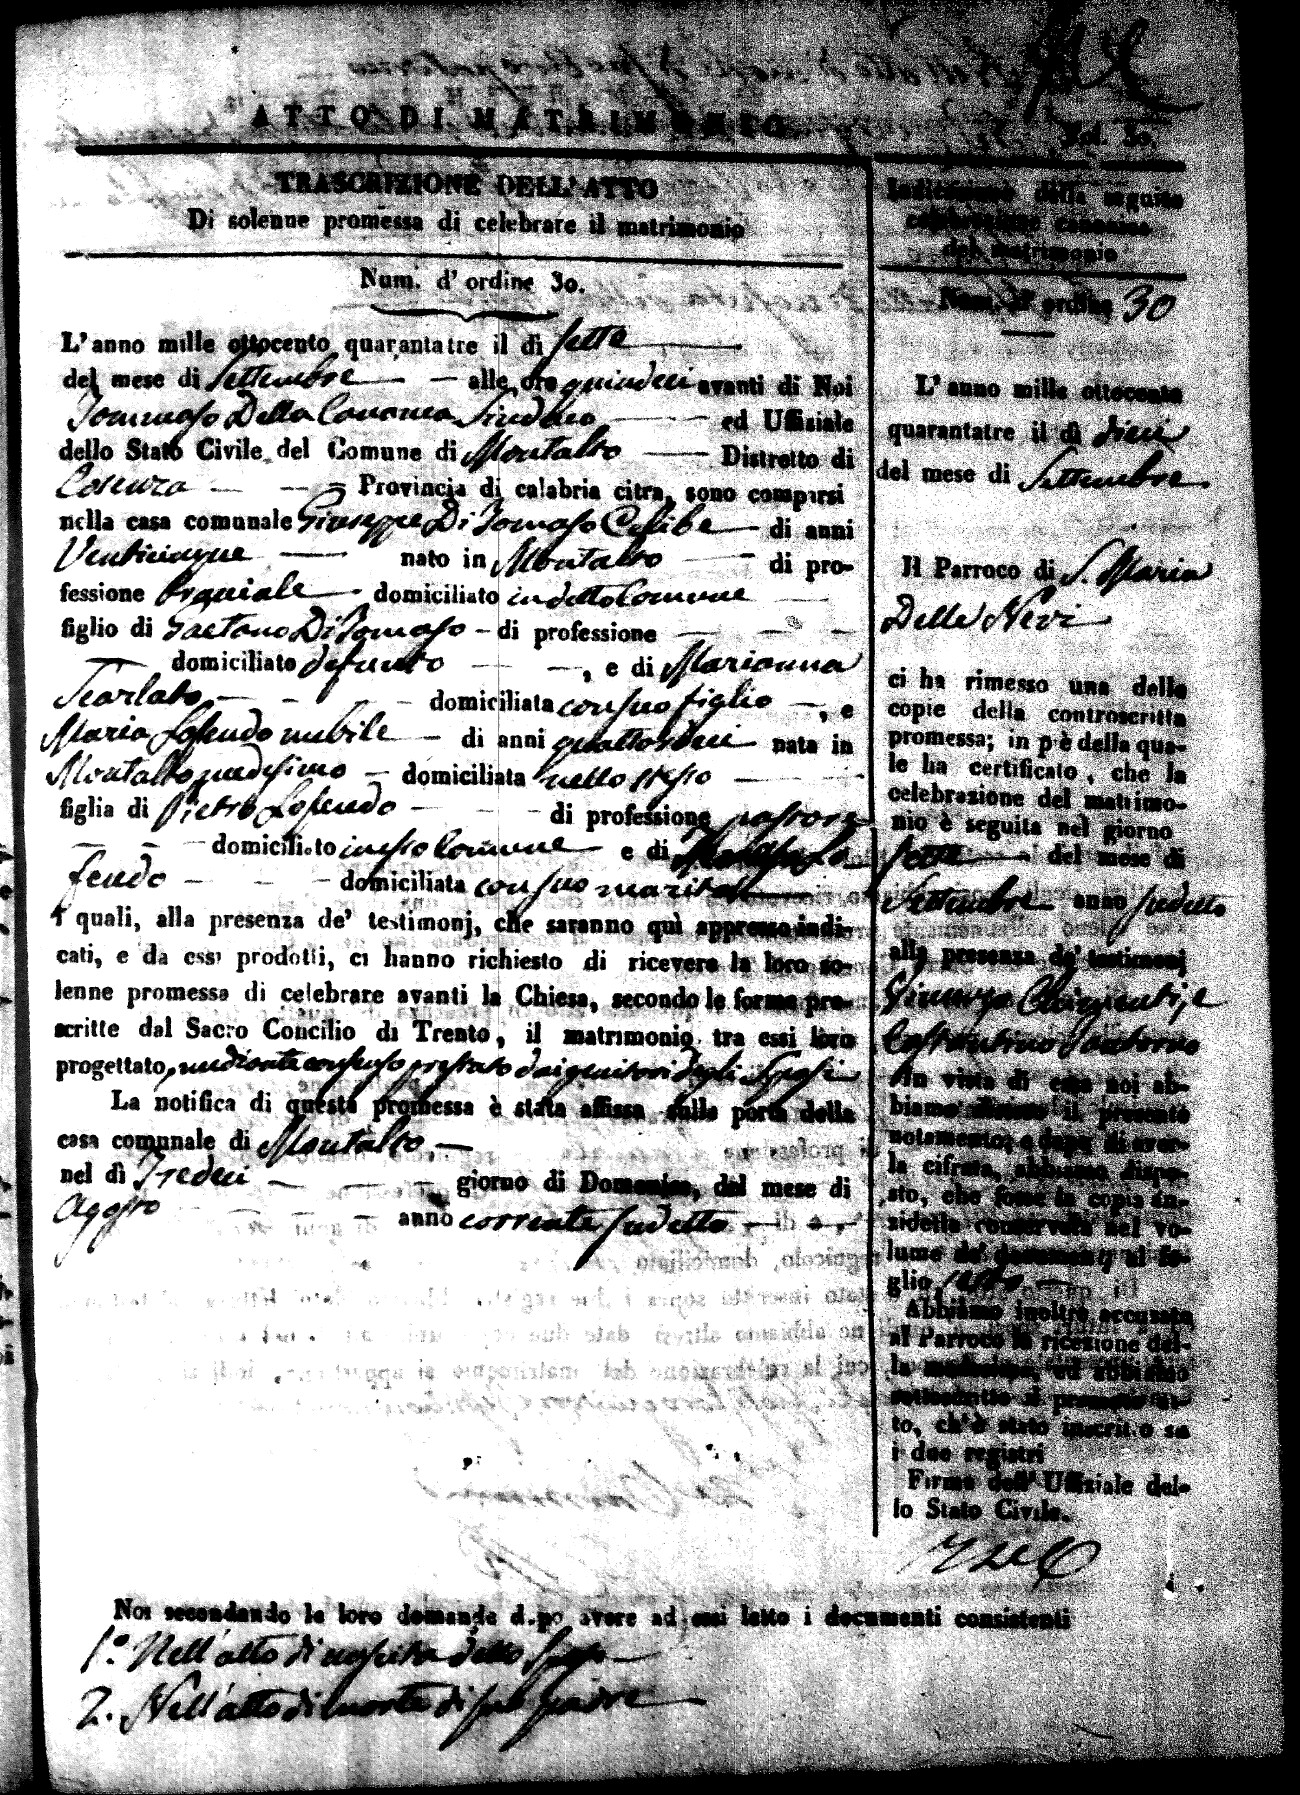 ATTO DI MATRIMONIO
Fol. 30.
TRASCRIZIONE DELL'ATTO
Di solenne promessa di celebrare il matrimonio
Num. d'ordine 30.
L'anno mille ottocento quarantatre il dì sette
del mese di Settembre — alle ore quindici avanti di Noi
Tommaso Della Cananea Sindaco — ed Uffiziale
dello Stato Civile del Comune di Montalto — Distretto di
Cosenza — Provincia di calabria citra, sono comparsi
nella casa comunale Giuseppe Di Tomaso Celibe — di anni
Venticinque — nato in Montalto — di pro-
fessione — domiciliato in detto Comune —
figlio di Gaetano Di Tomaso — di professione —
— domiciliato defunto —, e di Marianna
Scarlato — domiciliata con suo figlio —, e
Maria Lofendo nubile — di anni quattordici nata in
Montalto medesimo — domiciliata nello stesso —
figlia di Pietro Lofendo — di professione pastore
— domiciliato in esso Comune — e di Lo
fendo — domiciliata con suo marito —
i quali, alla presenza de' testimonj, che saranno quì appresso indi-
cati, e da essi prodotti, ci hanno richiesto di ricevere la loro so-
lenne promessa di celebrare avanti la Chiesa, secondo le forme pre-
scritte dal Sacro Concilio di Trento, il matrimonio tra essi loro
progettato, mediante consenso prestato dai genitori degli Sposi
La notifica di questa promessa è stata affissa sulla porta della
casa comunale di Montalto —
nel dì Tredici — giorno di Domenica, del mese di
Agosto — anno corrente sudetto —
Indicazione della seguita
celebrazione canonica
del matrimonio
Num. d'ordine 30
L'anno mille ottocento
quarantatre il dì dieci
del mese di Settembre.
Il Parroco di S. Maria
Delle Nevi
ci ha rimesso una delle
copie della controscritta
promessa; in piè della qua-
le ha certificato, che la
celebrazione del matrimo-
nio è seguita nel giorno
sette — del mese di
Settembre anno sudetto
alla presenza de' testimonj
Costantino
In vista di essa noi ab-
biamo disteso il presente
notamento; e dopo di aver-
la cifrata, abbiamo dispo-
sto, che fosse la copia an-
zidetta conservata nel vo-
lume de' documenti al fo-
glio sesto —
Abbiamo inoltre accusato
al Parroco la ricezione del-
la medesima, ed abbiamo
sottoscritto il presente at-
to, ch'è stato inscritto su
i due registri
Firma dell'Uffiziale del-
lo Stato Civile.
Noi secondando le loro domande dopo avere ad essi letto i documenti consistenti
1.º Nell'atto di nascita dello Sposo —
2. Nell'atto di morte di suo padre —